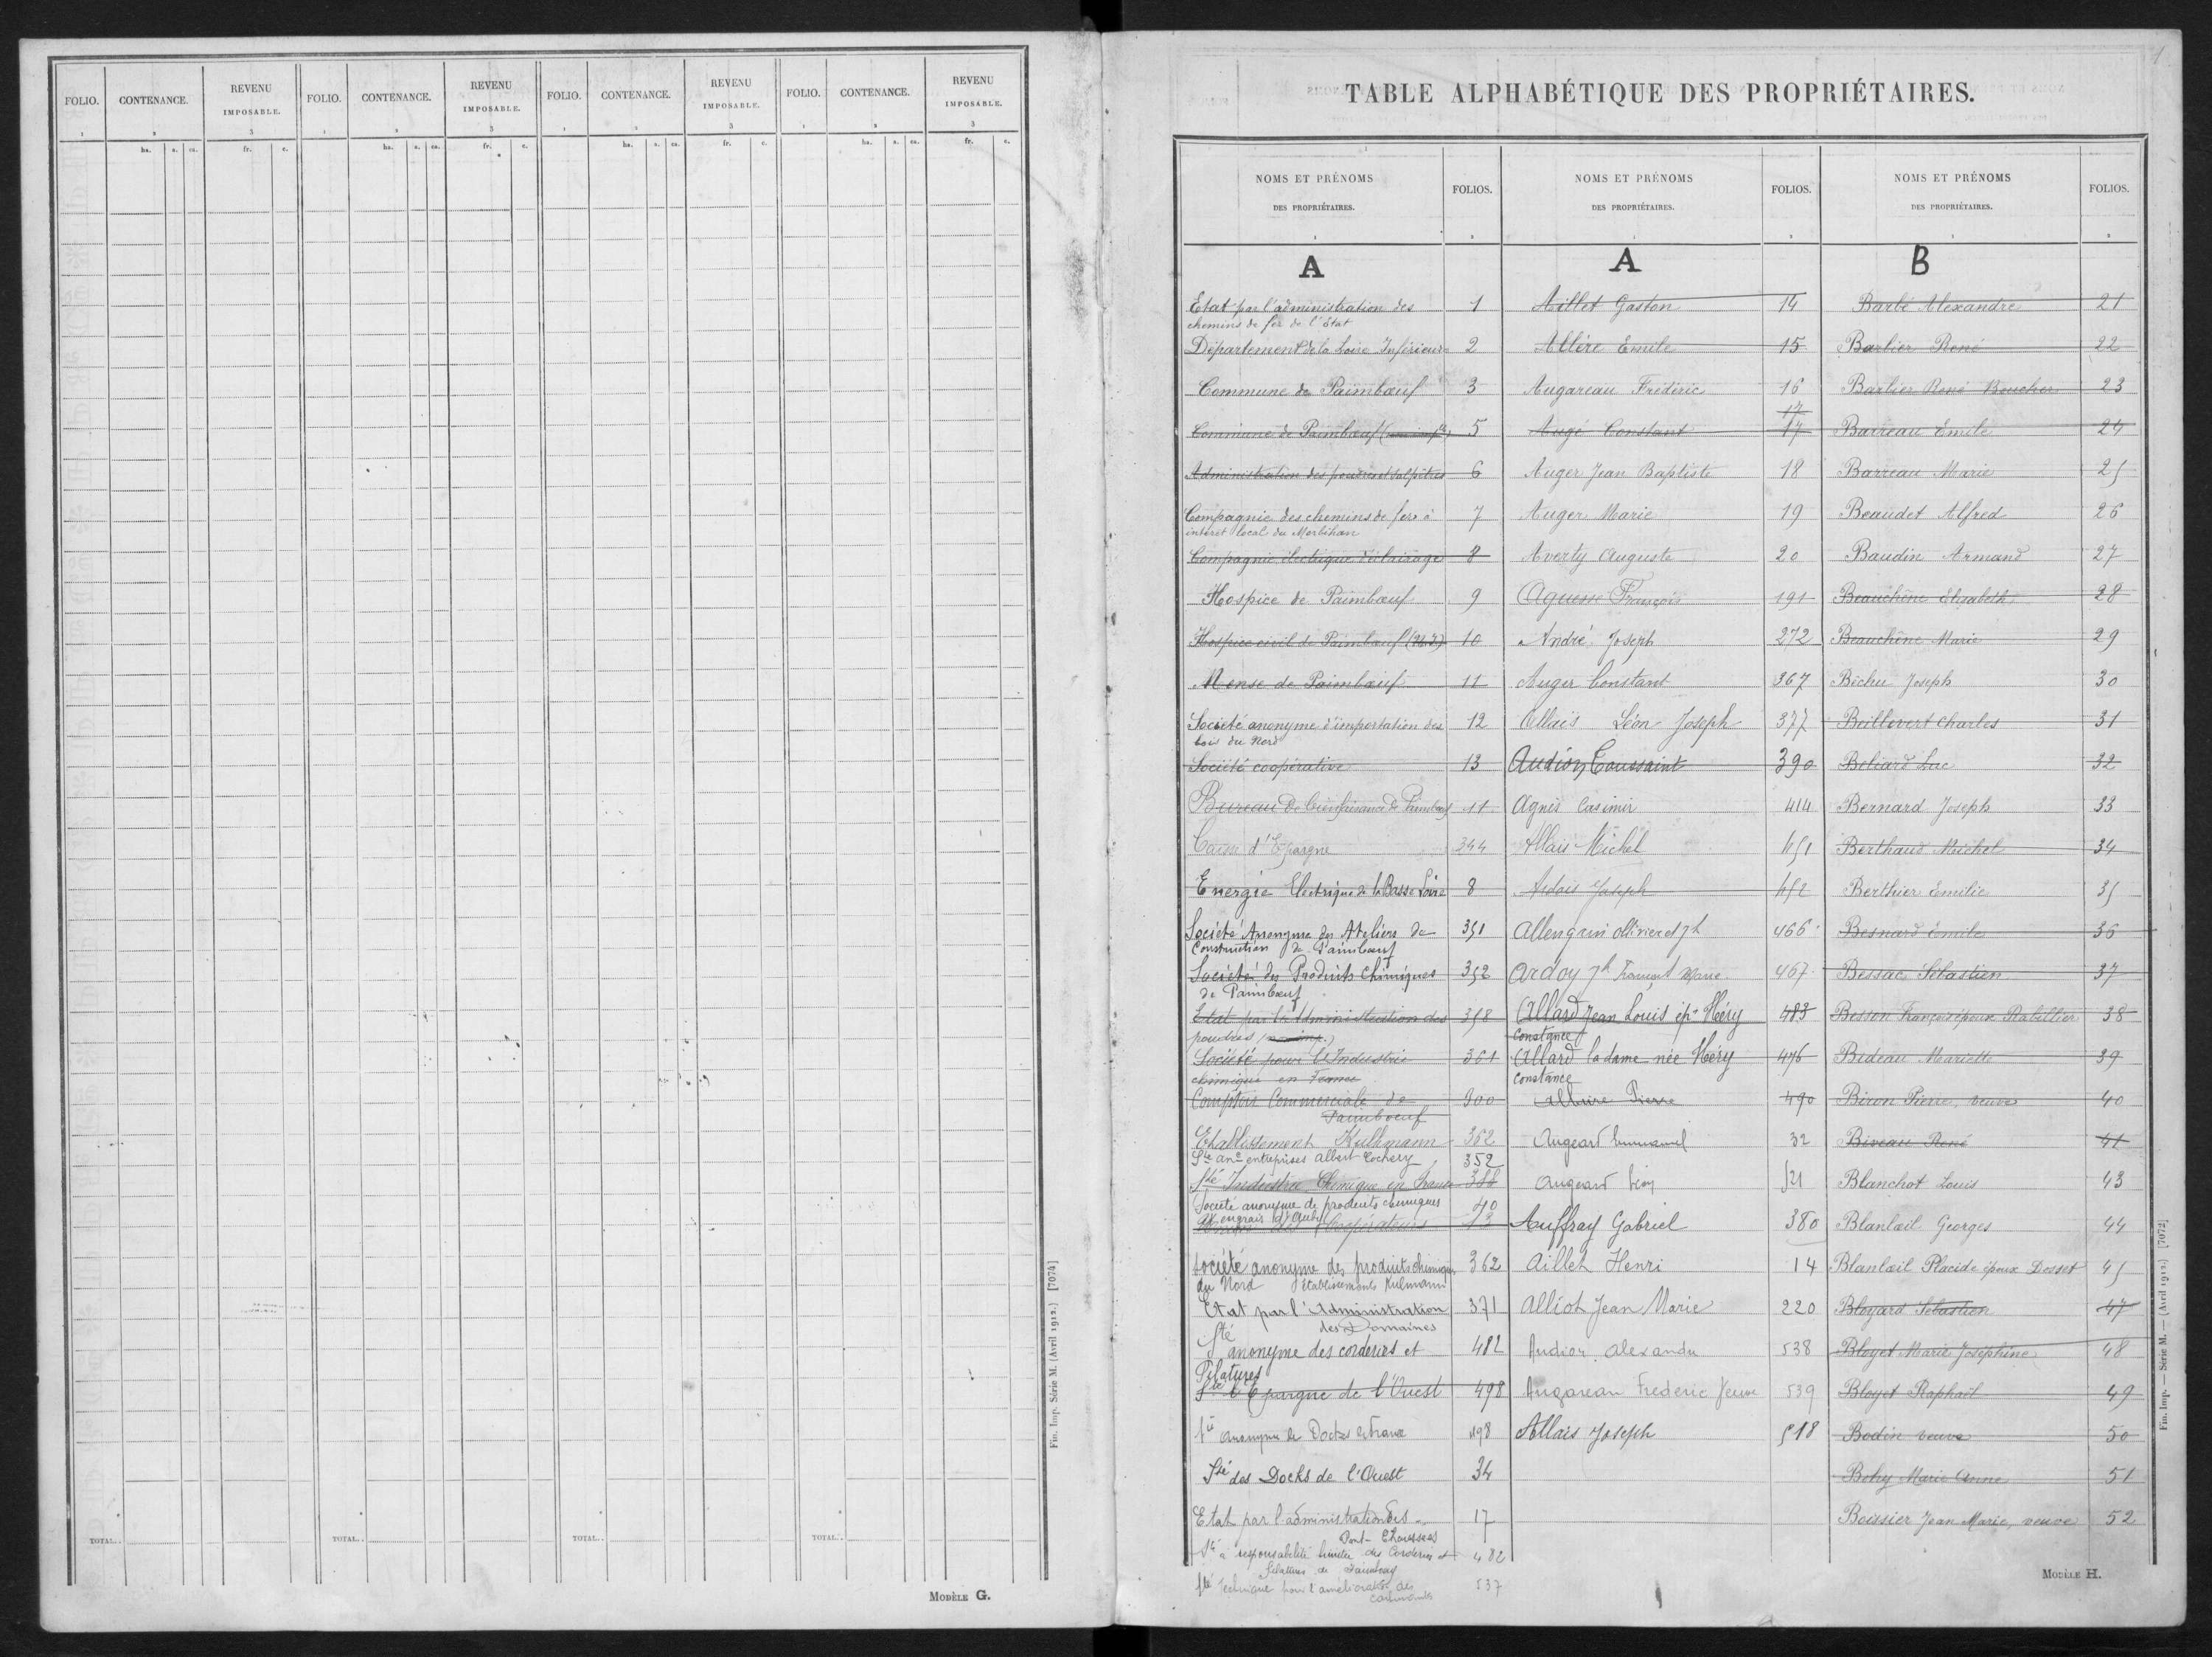 FOLIO. CONTENANCE. REVENU IMPOSABLE. FOLIO. CONTENANCE. REVENU IMPOSABLE. FOLIO. CONTENANCE. REVENU IMPOSABLE. FOLIO. CONTENANCE. REVENU IMPOSABLE.
1 2 3 1 2 3 1 2 3 1 2 3
ha. a. ca. fr. c. ha. a. ca. fr. c. ha. a. ca. fr. c. ha. a. ca. fr. c.
TOTAL. . TOTAL. . TOTAL. . TOTAL. .
Fin. Imp. Série M. (Avril 1912.) [7074]
MODÈLE G.
1
TABLE ALPHABÉTIQUE DES PROPRIÉTAIRES.
NOMS ET PRÉNOMS
DES PROPRIÉTAIRES.
FOLIOS.
NOMS ET PRÉNOMS
DES PROPRIÉTAIRES.
FOLIOS.
NOMS ET PRÉNOMS
DES PROPRIÉTAIRES.
FOLIOS.
1 2 1 2 1 2
A
Etat par l'administration des 1
chemins de fer de l'état
Département de la Loire Inférieure 2
Commune de Paimbœuf 3
Commune de Paimbœuf 5
Administration des poudres et salpêtres 6
Compagnie des chemins de fer à 7
intérêt local du Morbihan
Compagnie électrique d'éclairage 8
Hospice de Paimbœuf 9
Hospice civil de Paimbœuf 10
Mense de Paimbœuf 11
Société anonyme d'importation des 12
bois du Nord
Société coopérative 13
Bureau de bienfaisance de Paimbœuf 11
Caisse d'Epargne 344
Energie Electrique de la Basse Loire 8
Société Anonyme des Ateliers de 351
Construction de Paimbœuf
Société des Produits Chimiques 352
de Paimbœuf
Etat par l'Administration des 358
poudres
Société pour l'Industrie 361
chimique en France
Comptoir Commerciale de 300
Paimboeuf
Etablissement Kulhmann 362
Sté ane entreprises Albert Cochery 352
Sté Industrie Chimique en France
Société anonyme de produits chimiques 40
et engrais d'Auby
Coopérateurs 13
Société anonyme des produits chimiques 362
du Nord Etablissements Kulmann
Etat par l'Administration 371
des Domaines
Sté anonyme des corderies et 482
Filatures
Sté l'Epargne de l'Ouest 498
Sté anonyme de Docks de France 498
Sté des Docks de l'Ouest 34
Etat par l'administration des 17
Pont-Chaussées
Sté à responsabilité limitée des Corderies et 482
Filatures de Paimbœuf
Sté technique pour l'amélioration des 537
carburants
A
Aillet Gaston 14
Allére Emile 15
Augareau Frédéric 16
17
Augé Constant 17
Auger Jean Baptiste 18
Auger Marie 19
Averty Auguste 20
Aguesse François 191
André Joseph 272
Auger Constant 367
Allais Léon Joseph 377
Audion Toussaint 390
Agnès Casimir 414
Allais Michel 451
Ardois Joseph 452
Allengrin Olivier et Jh 466
Ardoy Jh 467
Allard Jean Louis ép. Héry 483
Constance
Allard la dame née Héry 476
Constance
Allaire Pierre 490
Angeard Emmanuel 32
Angeard Léon 521
Auffray Gabriel 380
Aillet Henri 14
Alliot Jean Marie 220
Audion Alexandre 538
Augareau Frederic Veuve 539
Allais Joseph 518
B
Barbé Alexandre 21
Barbier René 22
Barbier René Boucher 23
Barreau Emile 24
Barreau Marie 25
Beaudet Alfred 26
Baudin Armand 27
Beauchêne Elisabeth 28
Beauchêne Marie 29
Béchu Joseph 30
Beillevert Charles 31
Beliard Luc 32
Bernard Joseph 33
Berthaud Michel 34
Berthier Emilie 35
Besnard Emile 36
Bessac Sébastien 37
Besson François époux Rabillier 38
Bideau Mariette 39
Biron Pierre, veuve 40
Biveau René 41
Blanchot Louis 43
Blanlœil Georges 44
Blanlœil Placide époux Dosset 45
Bloyard Sébastien 47
Bloyet Marie Joséphine 48
Bloyet Raphaël 49
Bodin veuve 50
Bohy Marie Anne 51
Boissier Jean Marie, veuve 52
Fin. Imp. — Série M. — (Avril 1912.) [7072]
MODÈLE H.